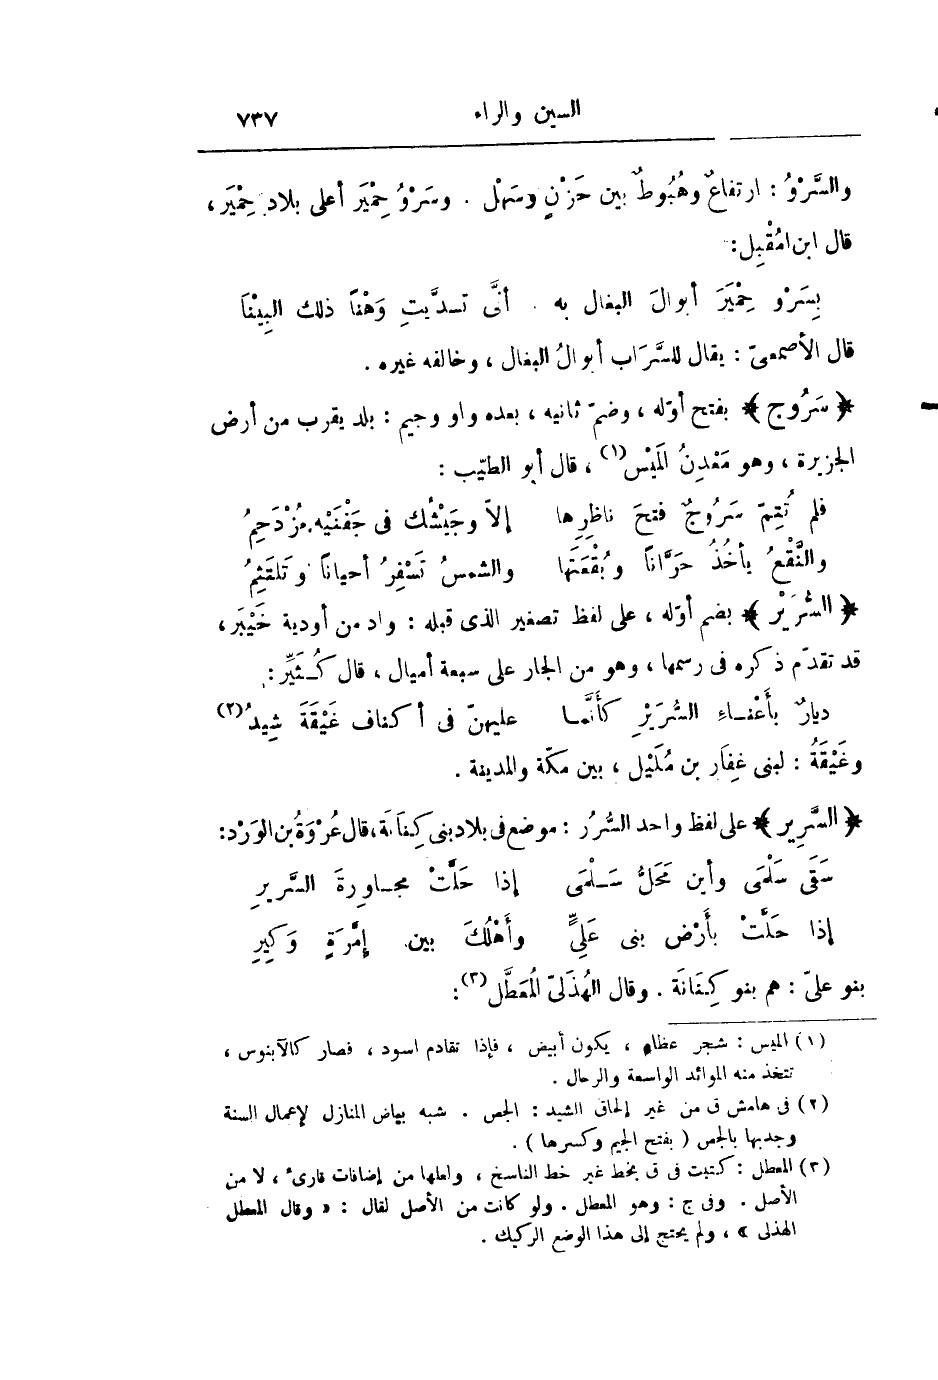 السين والراء ٧٣٧
والسَّرْوُ : ارتفاعٌ وهُبُوطٌ بين حَزْنٍ وسَهْل . وسَرْوُ حِمْيَر أعلى بلاد حِمْيَر ،
قال ابن مُقْبِل :
بِسَرْو حِمْيَرَ أبوالَ البغال به . أنَّى تسدَّيتِ وَهْنًا ذلك البِينَا
قال الأصمعىّ : يقال للسَّرَاب أبوالُ البغال ، وخالفه غيره .
﴿ سَرُوج ﴾ بفتح أوّله ، وضمّ ثانيه ، بعده واو وجيم : بلد يقرب من أرض
الجزيرة ، وهو مَعْدِنُ المَيْس(١) ، قال أبو الطيّب :
فلم تُتِمّ سَرُوجٌ فتحَ ناظرِها إلاّ وجَيْشُك فى جَفْنَيْه مُزْدَحِمُ
والنَّقْعُ يأخُذُ حَرَّانًا وبُقْعَتَها والشمسُ تَسْفِرُ أحيانًا وتَلتَثِمُ
﴿ السُّرَيْر ﴾ بضم أوّله ، على لفظ تصغير الذى قبله : واد من أودية خَيْبَر ،
قد تقدّم ذكره فى رسمها ، وهو من الجار على سبعة أميال ، قال كُثَيِّر :
ديارٌ بأَعْنـاءِ السُّرَيْرِ كأَنَّمـا عليهنّ فى أكناف غَيْقَةَ شِيدُ(٢)
وغَيْقَةُ : لبنى غِفَار بن مُلَيْل ، بين مكّة والمدينة .
﴿ السَّرِير ﴾ على لفظ واحد السُّرُر : موضع فى بلاد بنى كِنانة ، قال عُرْوَةُ بن الوَرْد :
سَقَى سَلْمَى وأين مَحَلُّ سَـلْمَى إذا حَلَّتْ مجـاورةَ السَّرير
إذا حَلَّتْ بأَرْض بنى عَلِىٍّ وأَهْلُكَ بين إمَّرَةٍ وَكِيرِ
بنو علىّ : هم بنو كِنَانَة . وقال الهُذَلىّ المُعَطَّل(٣) :
(١) الميس : شجر عظام ، يكون أبيض ، فإذا تقادم اسود ، فصار كالآبنوس ،
تتخذ منه الموائد الواسعة والرحال .
(٢) فى هامش ق من غير إلحاق الشيد : الجص . شبه بياض المنازل لإعمال السنة
وجدبها بالجص ( بفتح الجيم وكسرها ) .
(٣) المعطل : كتبت فى ق بخط غير خط الناسخ ، ولعلها من إضافات قارىء ، لا من
الأصل . وفى ج : وهو المعطل . ولو كانت من الأصل لقال : « وقال المعطل
الهذلى » ، ولم يحتج إلى هذا الوضع الركيك .